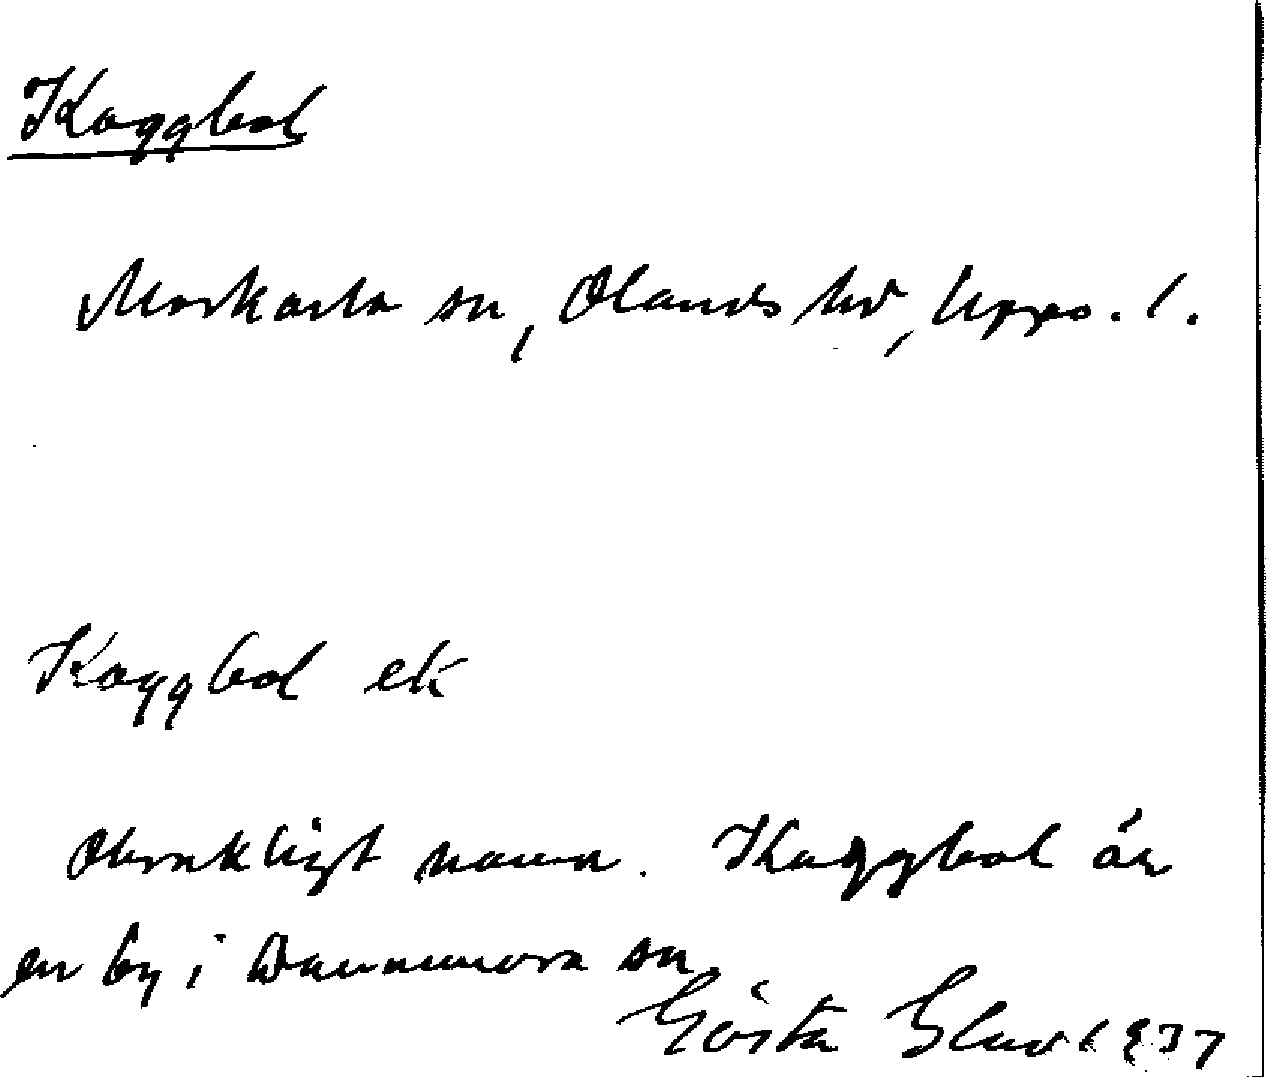 Kaggbol
Morkarla sn, Olands hd, Upps. l.
Kaggbol ek
Obrukligt namn. Kaggbol är
en by i Dannemora sn
Gösta 1937